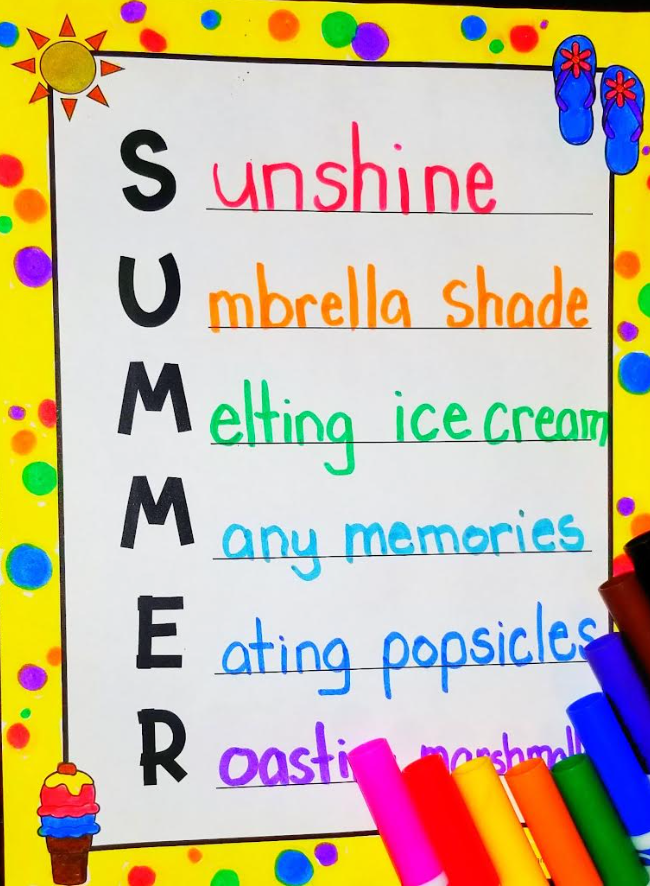 Sunshine
Umbrella shade
Melting ice cream
Many memories
Eating popsicles